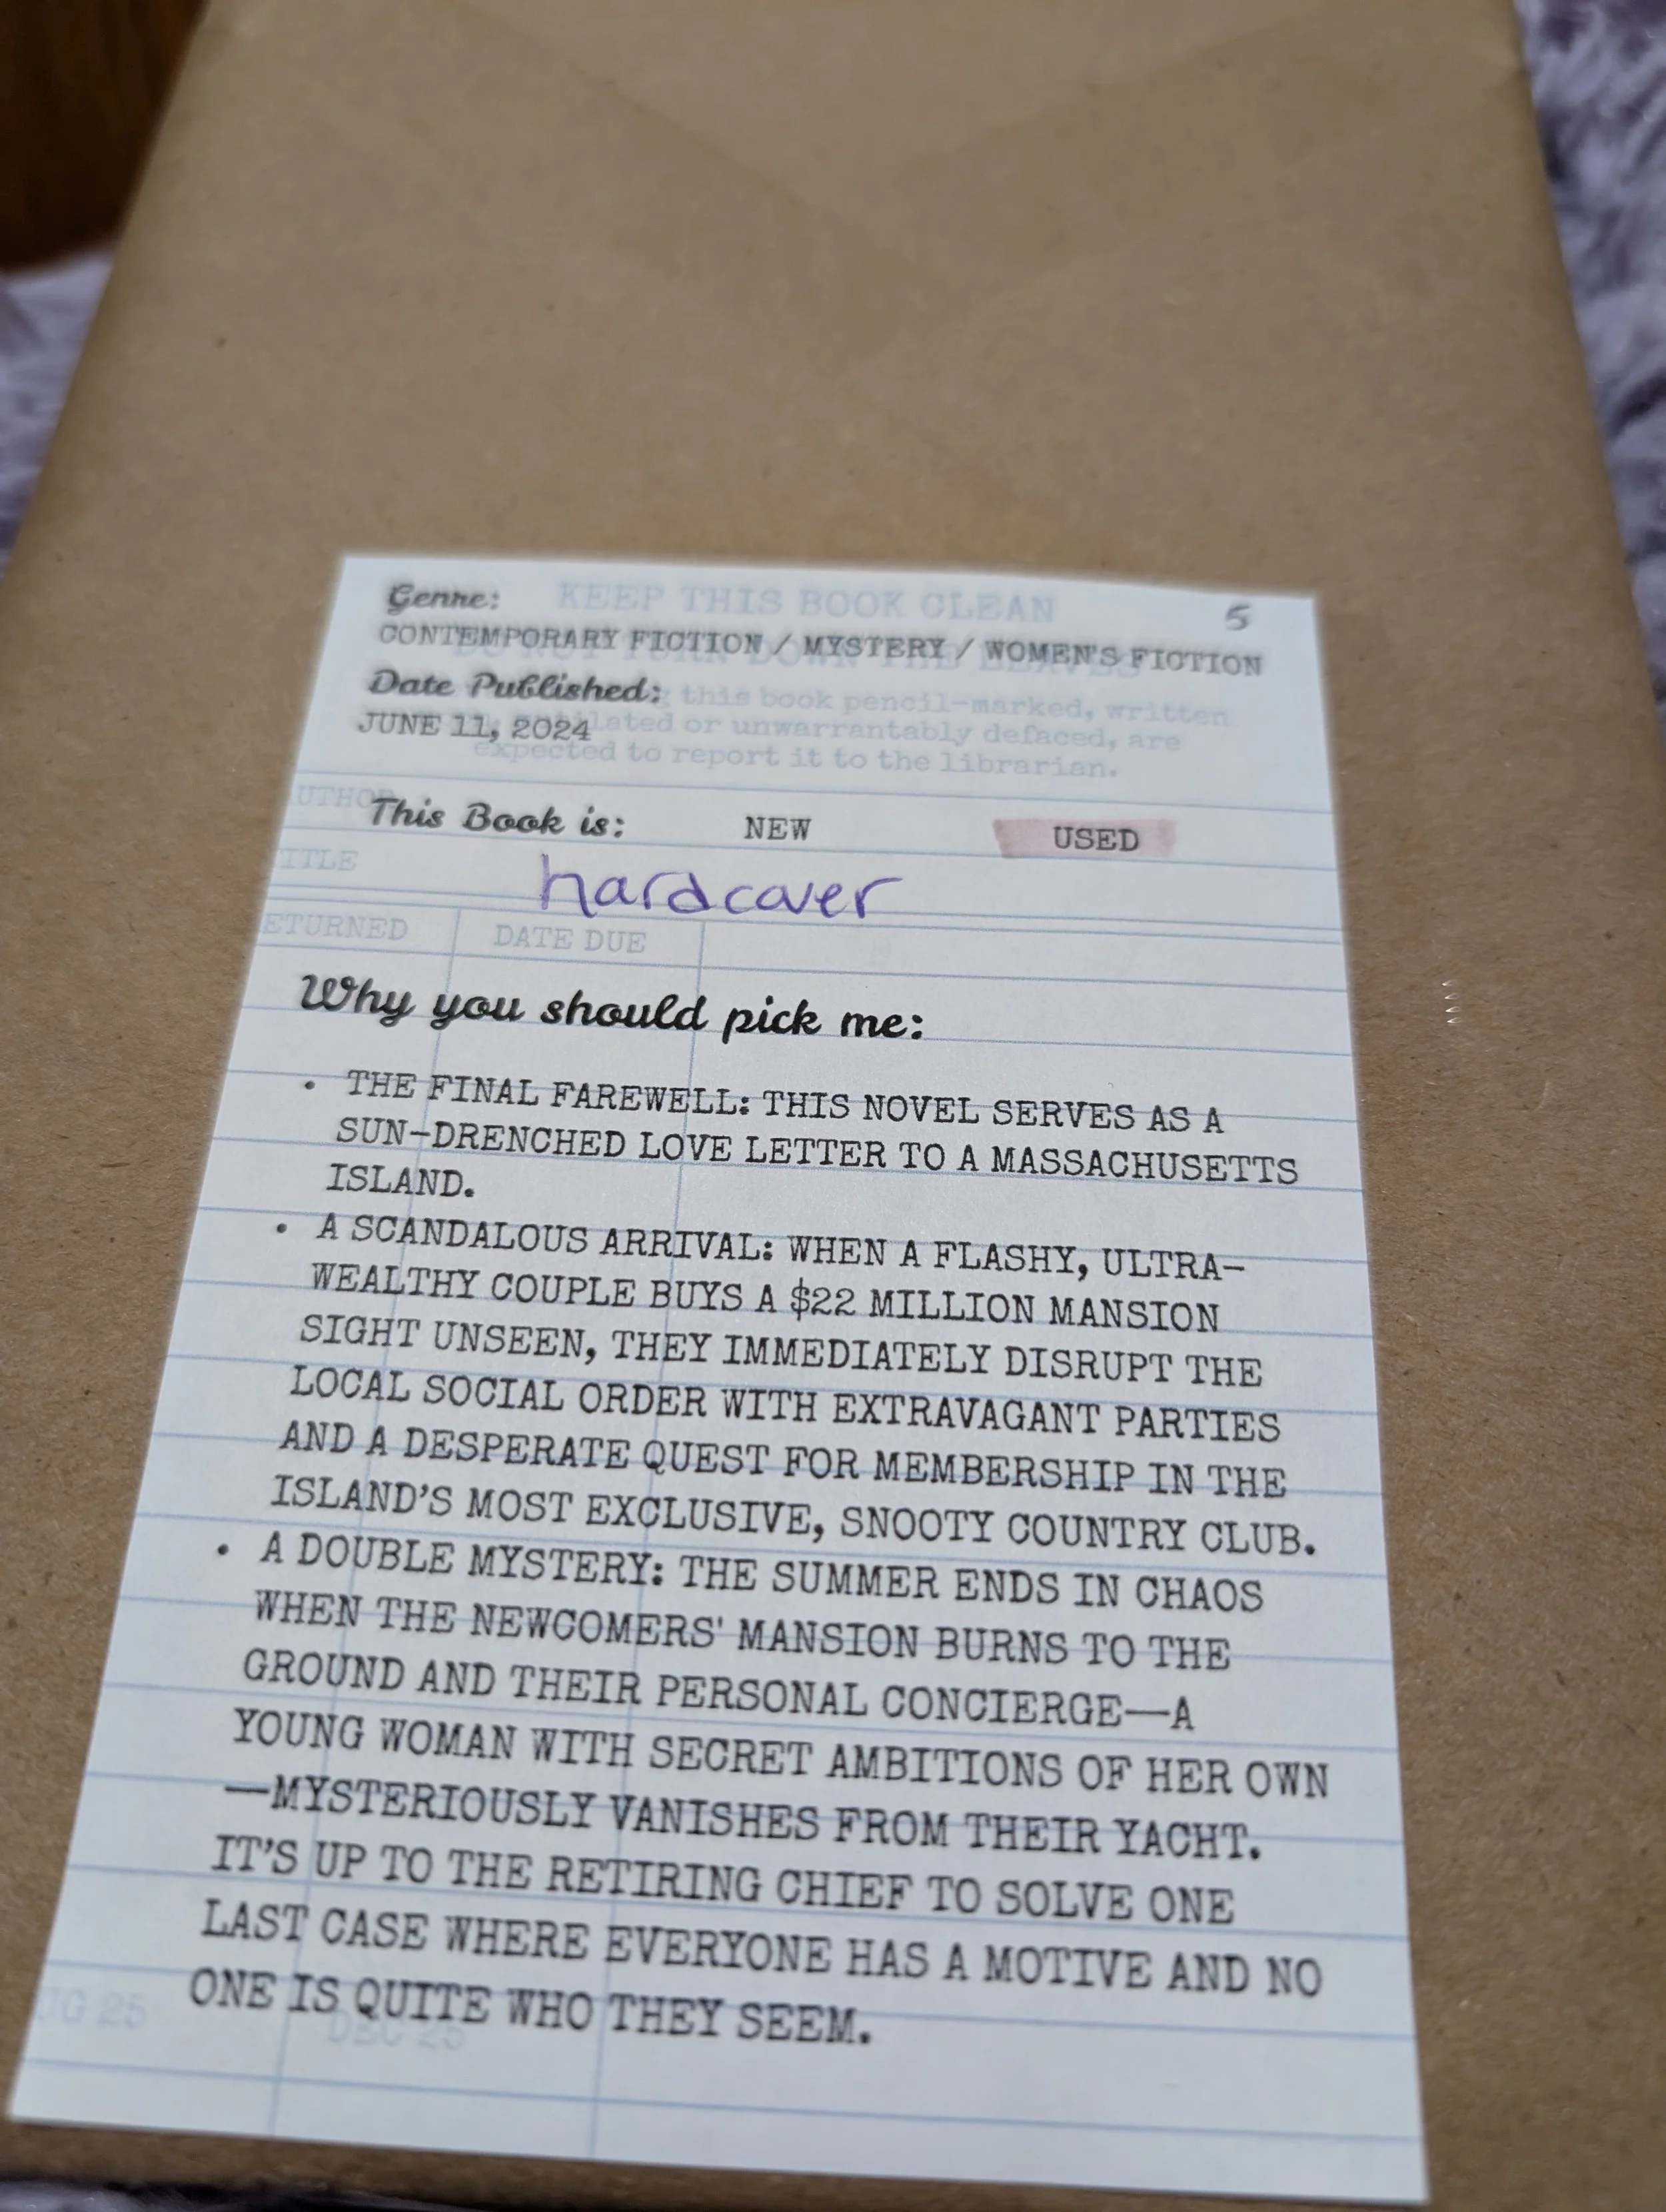 Genre: KEEP THIS BOOK CLEAN 5
CONTEMPORARY FICTION / MYSTERY / WOMEN'S FICTION
Date Published: this book pencil-marked, written
JUNE 11, 2024 or unwarrantably defaced, are
expected to report it to the librarian.
This Book is: NEW USED
hardcover
ETURNED DATE DUE
Why you should pick me:
• THE FINAL FAREWELL: THIS NOVEL SERVES AS A
SUN-DRENCHED LOVE LETTER TO A MASSACHUSETTS
ISLAND.
• A SCANDALOUS ARRIVAL: WHEN A FLASHY, ULTRA-
WEALTHY COUPLE BUYS A $22 MILLION MANSION
SIGHT UNSEEN, THEY IMMEDIATELY DISRUPT THE
LOCAL SOCIAL ORDER WITH EXTRAVAGANT PARTIES
AND A DESPERATE QUEST FOR MEMBERSHIP IN THE
ISLAND'S MOST EXCLUSIVE, SNOOTY COUNTRY CLUB.
• A DOUBLE MYSTERY: THE SUMMER ENDS IN CHAOS
WHEN THE NEWCOMERS' MANSION BURNS TO THE
GROUND AND THEIR PERSONAL CONCIERGE—A
YOUNG WOMAN WITH SECRET AMBITIONS OF HER OWN
—MYSTERIOUSLY VANISHES FROM THEIR YACHT.
IT'S UP TO THE RETIRING CHIEF TO SOLVE ONE
LAST CASE WHERE EVERYONE HAS A MOTIVE AND NO
ONE IS QUITE WHO THEY SEEM.
UG 25 DEC 25